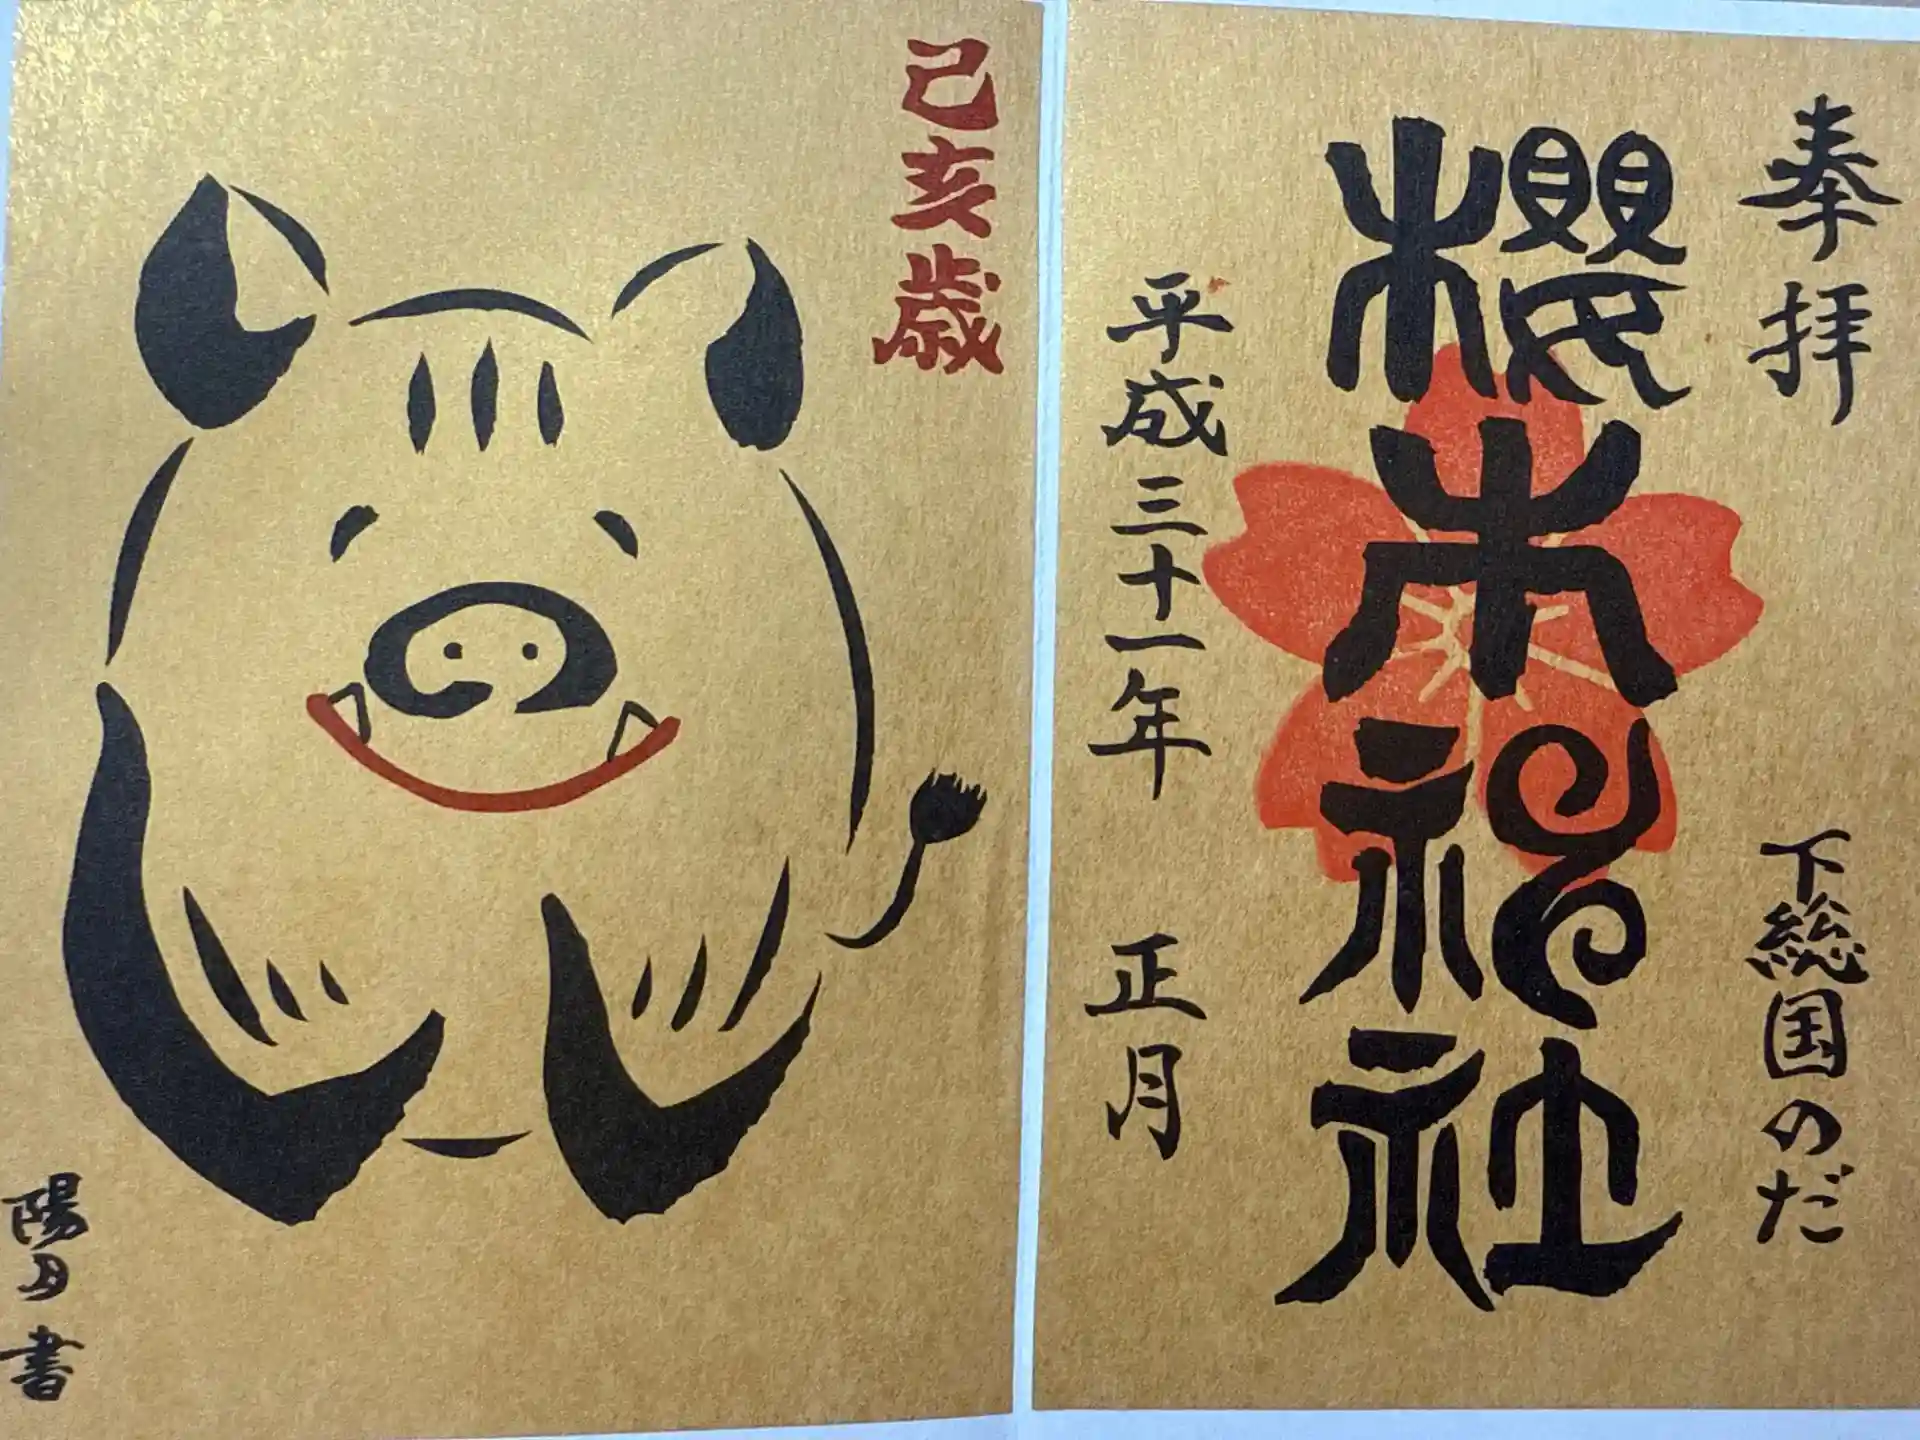 奉拝
下総国のだ
櫻木神社
平成三十一年
正月
己亥歳
陽月書